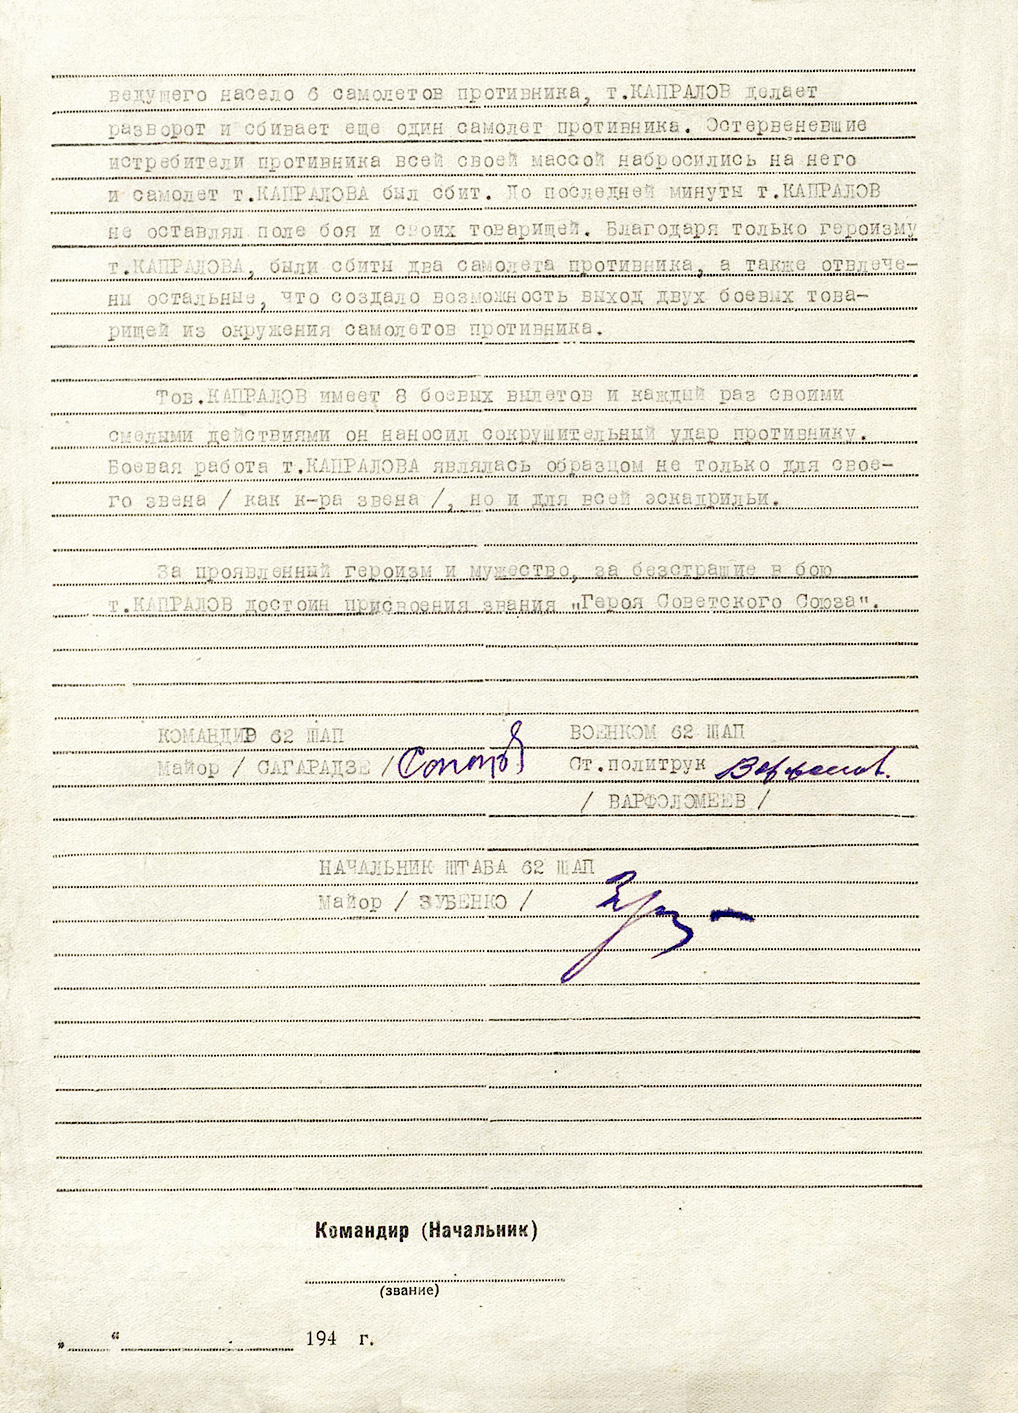 ведущего насело 6 самолетов противника, т.КАПРАЛОВ делает
разворот и сбивает еще один самолет противника. Остервеневшие
истребители противника всей своей массой набросились на него
и самолет т.КАПРАЛОВА был сбит. До последней минуты т.КАПРАЛОВ
не оставлял поле боя и своих товарищей. Благодаря только героизму
т.КАПРАЛОВА, были сбиты два самолета противника, а также отвлече-
ны остальные, что создало возможность выход двух боевых това-
рищей из окружения самолетов противника.
Тов.КАПРАЛОВ имеет 8 боевых вылетов и каждый раз своими
смелыми действиями он наносил сокрушительный удар противнику.
Боевая работа т.КАПРАЛОВА являлась образцом не только для свое-
го звена / как к-ра звена /, но и для всей эскадрильи.
За проявленный героизм и мужество, за безстрашие в бою
т.КАПРАЛОВ достоин присвоения звания „Героя Советского Союза".
КОМАНДИР 62 ШАП
Майор / САГАРАДЗЕ /
ВОЕНКОМ 62 ШАП
Ст.политрук
/ ВАРФОЛОМЕЕВ /
НАЧАЛЬНИК ШТАБА 62 ШАП
Майор / ЗУБЕНКО /
Командир (Начальник)
(звание)
„ “ 194 г.